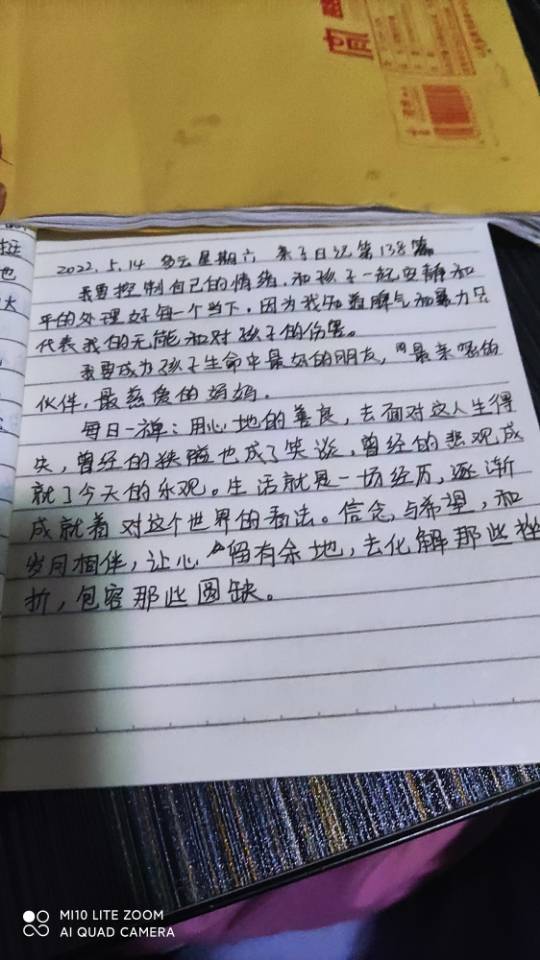 2022.5.14 多云 星期六 亲子日记第138篇
我要控制自己的情绪，和孩子一起安静和
平的处理好每一个当下，因为我知道脾气和暴力只
代表我的无能和对孩子的伤害。
我要成为孩子生命中最好的朋友，最亲密的
伙伴，最慈爱的妈妈。
每日一禅：用心地的善良，去面对这人生得
失，曾经的狭隘也成了笑谈，曾经的悲观成
就了今天的乐观。生活就是一场经历，逐渐
成就着对这个世界的看法。信念，与希望，和
岁月相伴，让心留有余地，去化解那些挫
折，包容那些圆缺。
MI10 LITE ZOOM
AI QUAD CAMERA